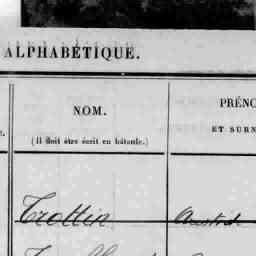 ALPHABÉTIQUE.
NOM.
PRÉNO
(Il doit être écrit en bâtarde.)
ET SURN
Trottin